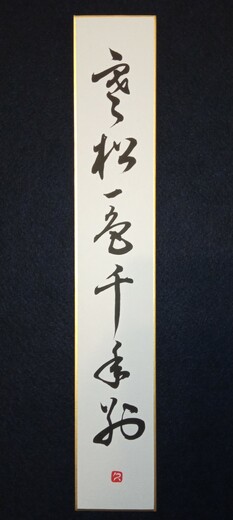 寒松一色千年別